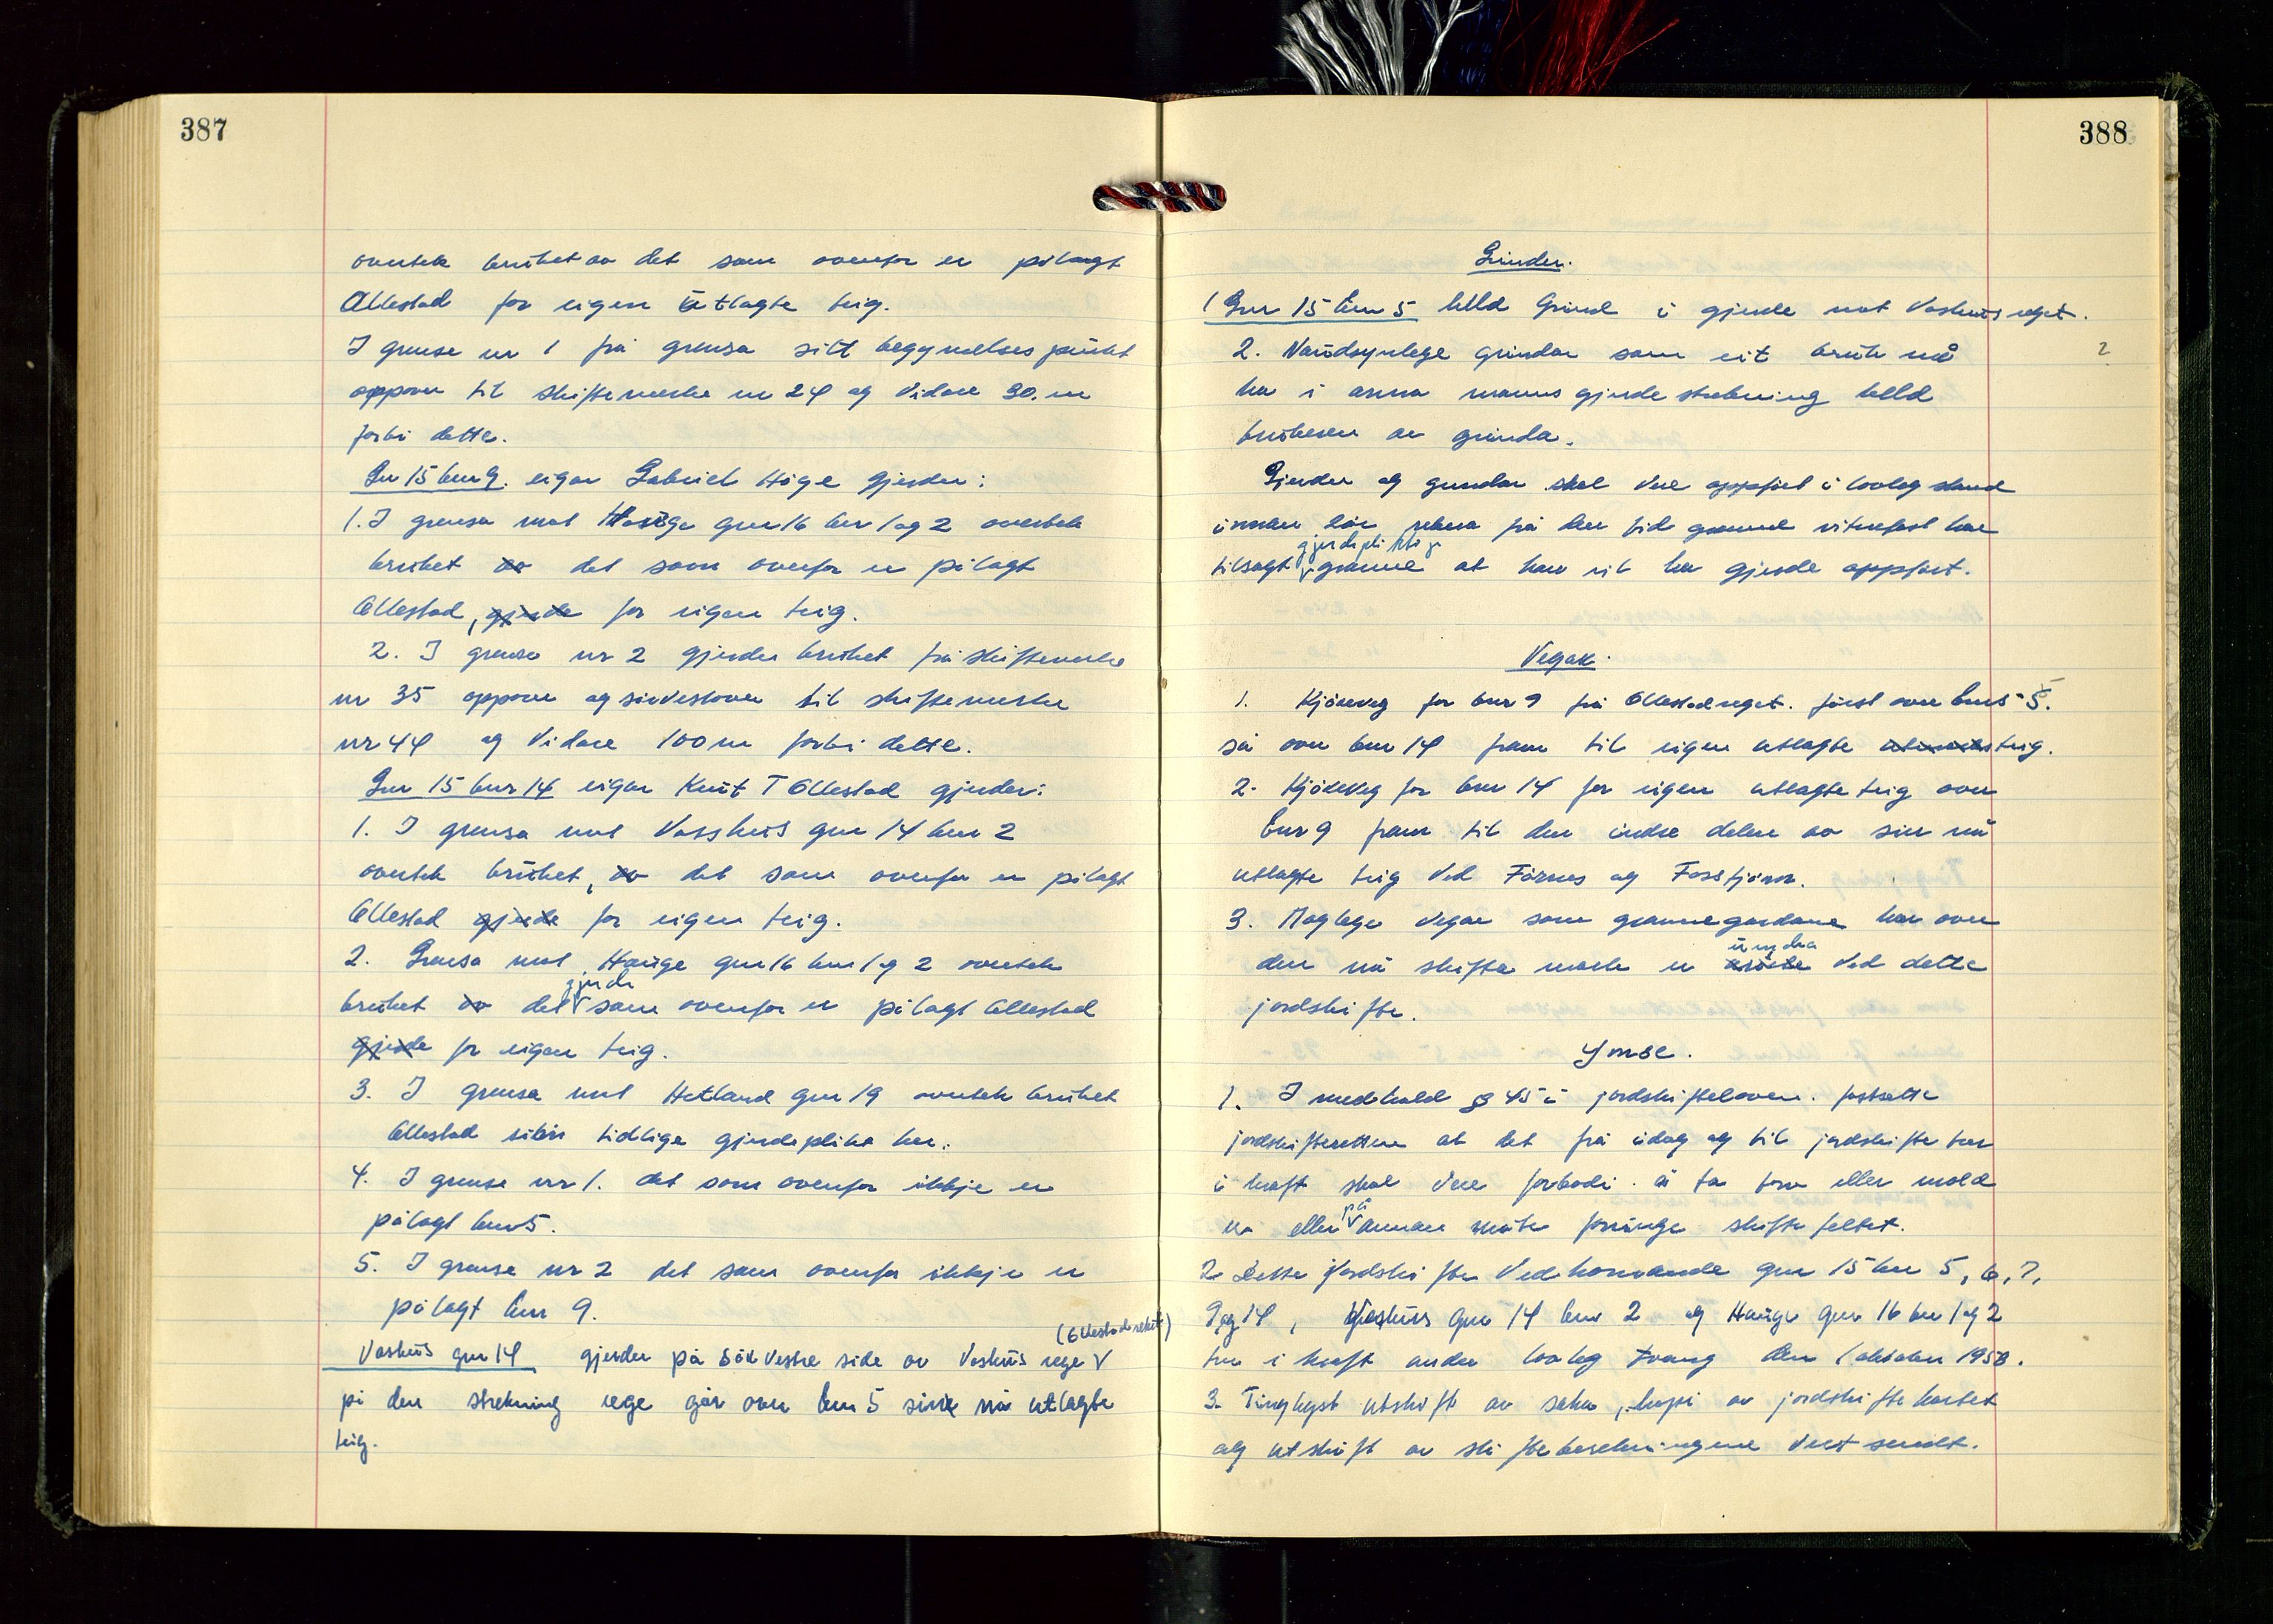 387
overtek bruket av det som ovenfor er pålagt
Ollestad for eigen utlagte teig.
I grense nr 1 frå grensa sitt begynnelsespunkt
oppover til skiftemerke nr 24 og vidare 30. m
forbi dette.
Gnr 15 bnr 9. eigar Gabriel Høge gjerder:
1. I grensa mot Hauge gnr 16 bnr 1 og 2 overtek
bruket av det som ovenfor er pålagt
Ollestad, gjerde for eigen teig.
2. I grense nr 2 gjerder bruket frå skiftemerke
nr 35 oppover og sudvestover til skiftemerke
nr 44 og vidare 100 m forbi dette.
Gnr 15 bnr 14 eigar Knut T Ollestad gjerder:
1. I grensa mot Vasshus gnr 14 bnr 2
overtek bruket, av det som ovenfor er pålagt
Ollestad gjerde for eigen teig.
2. Grensa mot Hauge gnr 16 bnr 1 og 2 overtek
bruket av det gjerde som ovenfor er pålagt Ollestad
gjerde for eigen teig.
3. I grensa mot Hetland gnr 19 overtek bruket
Ollestad si tidlige gjerdeplikt her.
4. I grense nr 1. det som ovenfor ikkje er
pålagt bnr 5.
5. I grense nr 2 det som ovenfor ikkje er
pålagt bnr 9.
(Ollestadreket)
Vashus gnr 14 gjerder på sökvestre side av Vashus rege
på den strekning rege går over bnr 5 sin nå utlagte
teig.
388
Grinder.
1 Gnr 15 bnr 5 held Grind i gjerde mot Vashusreget.
2. Naudsynlege grindar som eit bruk må 2
ha i anna manns gjerdestrekning held
brukeren av grinda.
Gjerder og grindar skal vere oppført i lovleg stand
innan to frå den tid granne vitnefast har
tilsagt gjerdepliktig granne at han vil ha gjerde oppført.
Vegar.
1. Kjöreveg for bnr 9 frå Ollestadreget. først over bnr 5.
så over bnr 14 fram til eigen utlagte teig.
2. Kjöreveg for bnr 14 for eigen utlagte teig over
bnr 9 fram til den indre delen av sin nå
utlagte teig ved Förnes og Fosstjörn.
3. Moglege vegar som grannegardane har over
den nå skifta mark er undra ved dette
jordskifte.
Ymse.
1. I medhald § 45 i jordskifteloven. fastsette
jordskifteretten at det frå idag og til jordskifte tar
i kraft skal vere forbode. å ta torv eller mold
eller på annan måte forringe skiftefeltet.
2. Dette jordskifte vedkomande gnr 15 bnr 5, 6, 7,
9 og 14, Vashus gnr 14 bnr 2 og Hauge gnr 16 bnr 1 og 2
trer i kraft under lovleg tvang den 1 oktober 1958.
3. Tinglyst utskift av saka, kopi av jordskiftekartet
og utskift av skifteberekningene vert sendt.